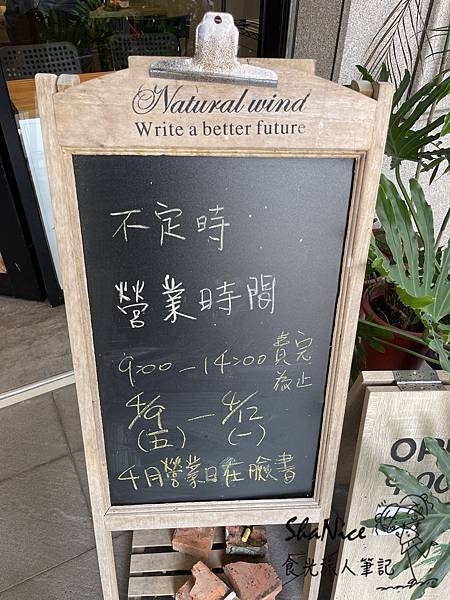 Natural wind
Write a better future
不定時
營業時間
9:00-14:00 賣完為止
4/9 - 4/12
(五) (一)
4月營業日在臉書
OPE
9:00
ShaNice
食光旅人筆記